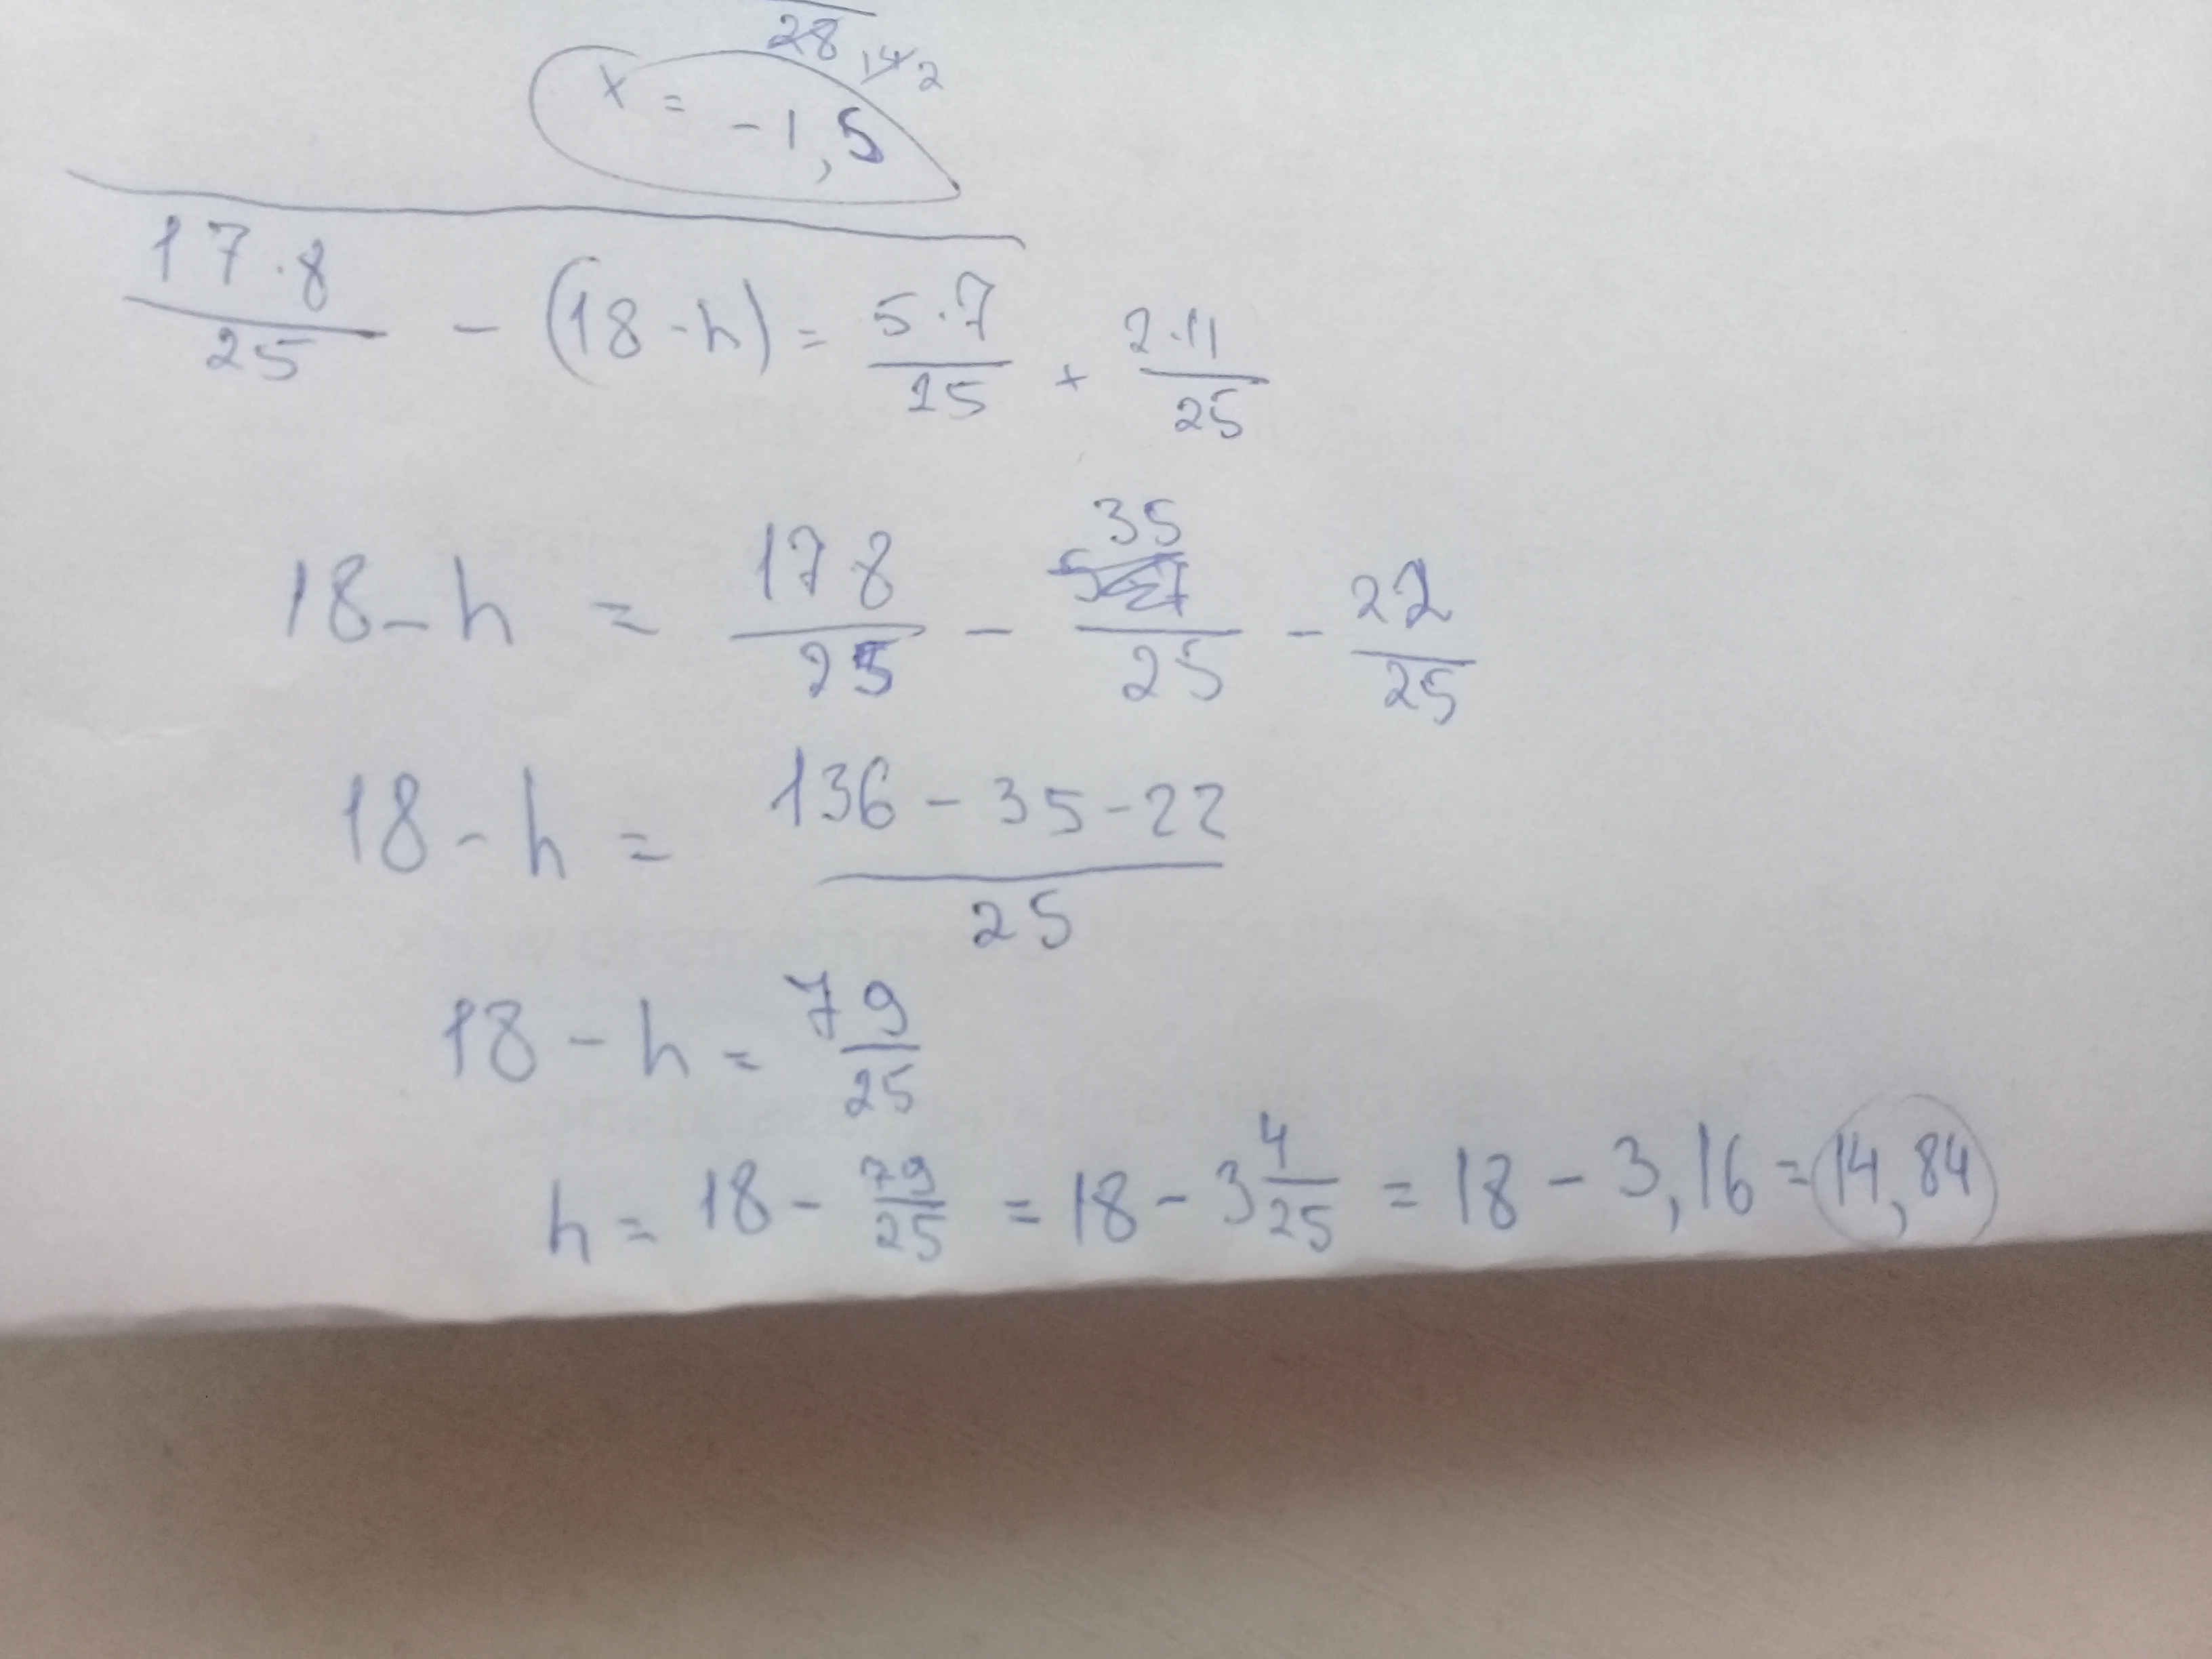 28 14 2
x = -1,5
17·8/25 - (18-h) = 5·7/25 + 2·11/25
18-h = 17·8/25 - 35/25 - 22/25
18-h = 136-35-22/25
18-h = 79/25
h = 18 - 79/25 = 18 - 3 4/25 = 18 - 3,16 = 14,84